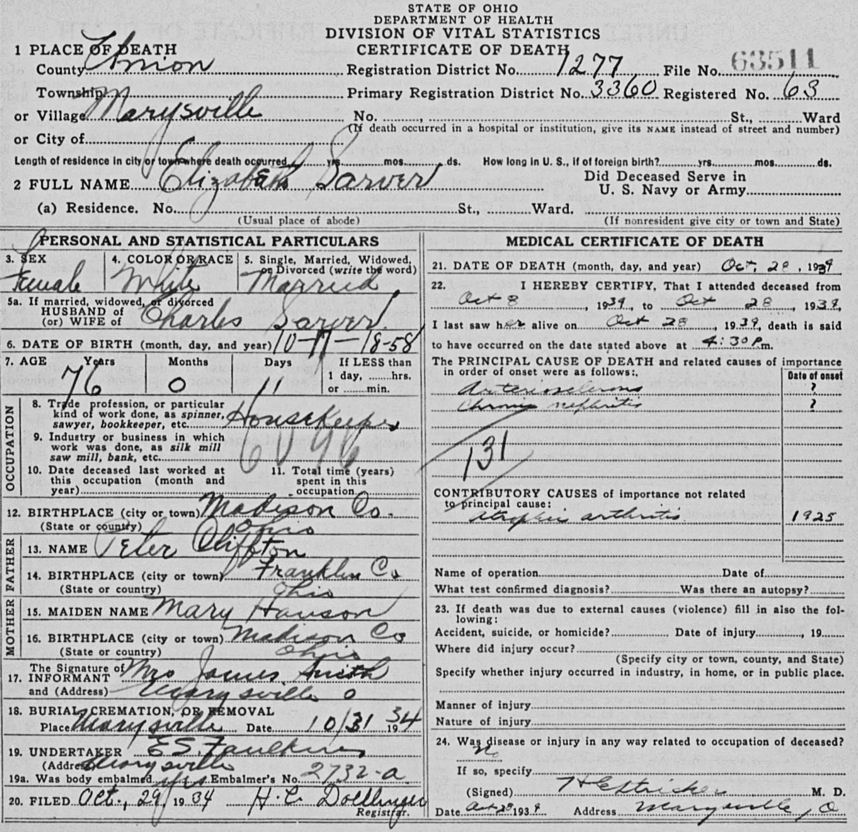 STATE OF OHIO
DEPARTMENT OF HEALTH
DIVISION OF VITAL STATISTICS
CERTIFICATE OF DEATH
1 PLACE OF DEATH
County Union Registration District No. 1277 File No. 63511
Township Primary Registration District No. 3360 Registered No. 63
or Village Marysville No. St., Ward
(If death occurred in a hospital or institution, give its NAME instead of street and number)
or City of
Length of residence in city or town where death occurred yrs. mos. ds. How long in U. S., if of foreign birth? yrs. mos. ds.
2 FULL NAME Elizabeth Sarver Did Deceased Serve in U. S. Navy or Army
(a) Residence. No. St., Ward.
(Usual place of abode) (If nonresident give city or town and State)
PERSONAL AND STATISTICAL PARTICULARS
3. SEX Female
4. COLOR OR RACE White
5. Single, Married, Widowed, or Divorced (write the word) Married
5a. If married, widowed, or divorced
HUSBAND of
(or) WIFE of Charles Sarver
6. DATE OF BIRTH (month, day, and year) 10-17-1858
7. AGE Years Months Days If LESS than
1 day, hrs.
or min.
76 0 11
OCCUPATION
8. Trade, profession, or particular
kind of work done, as spinner,
sawyer, bookkeeper, etc. Housekeeper
9. Industry or business in which
work was done, as silk mill
saw mill, bank, etc.
6096
10. Date deceased last worked at
this occupation (month and
year)
11. Total time (years)
spent in this
occupation
12. BIRTHPLACE (city or town) Madison Co.
(State or country) Ohio
FATHER
13. NAME Peter Cliffton
14. BIRTHPLACE (city or town) Franklin Co
(State or country) Ohio
MOTHER
15. MAIDEN NAME Mary Hanson
16. BIRTHPLACE (city or town) Madison Co
(State or country) Ohio
17. The Signature of
INFORMANT Mrs James Smith
and (Address) Marysville O
18. BURIAL, CREMATION, OR REMOVAL
Place Marysville Date 10/31 1934
19. UNDERTAKER E.S. Faulkner
(Address) Marysville
19a. Was body embalmed yes Embalmer's No. 2732-a
20. FILED Oct., 29, 1934 H. C. Registrar.
MEDICAL CERTIFICATE OF DEATH
21. DATE OF DEATH (month, day, and year) Oct. 28, 1934
22. I HEREBY CERTIFY, That I attended deceased from
Oct 8, 1934, to Oct 28, 1934,
I last saw her alive on Oct 28, 1934, death is said
to have occurred on the date stated above at 4:30 P.m.
The PRINCIPAL CAUSE OF DEATH and related causes of importance
in order of onset were as follows: Date of onset
Arteriosclerosis ?
Chronic nephritis ?
131
CONTRIBUTORY CAUSES of importance not related
to principal cause:
arthritis 1925
Name of operation Date of
What test confirmed diagnosis? Was there an autopsy?
23. If death was due to external causes (violence) fill in also the following:
Accident, suicide, or homicide? Date of injury , 19
Where did injury occur?
(Specify city or town, county, and State)
Specify whether injury occurred in industry, in home, or in public place.
Manner of injury
Nature of injury
24. Was disease or injury in any way related to occupation of deceased?
If so, specify
(Signed) M. D.
Date Oct 28 1934 Address Marysville, O